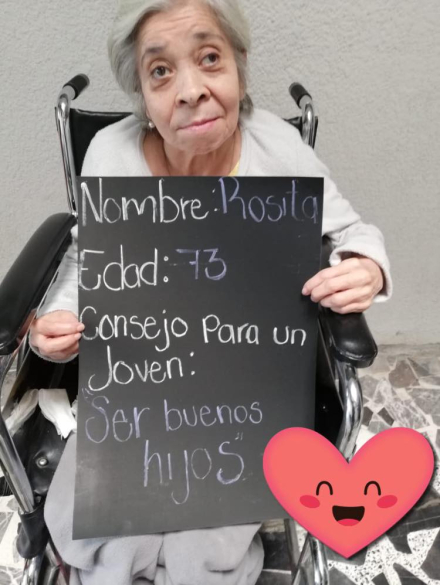 Nombre: Rosita
Edad: 73
Consejo Para un
Joven:
"Ser buenos
hijos"